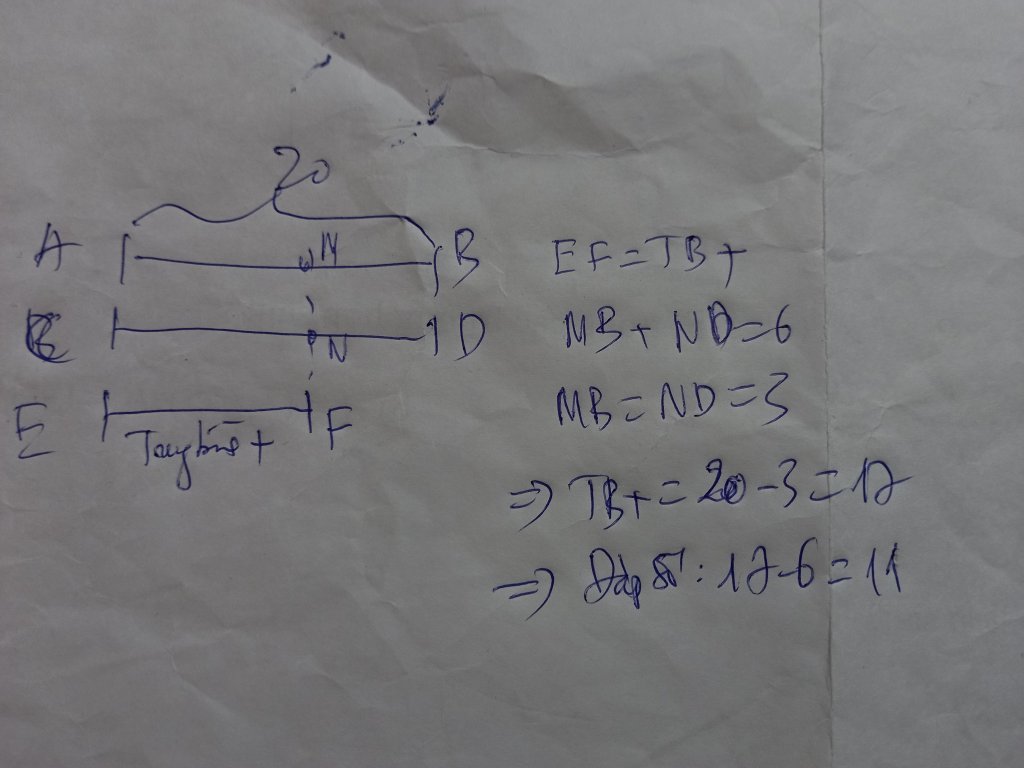 20
A M B
C N D
E F
Trung bình +
EF = TB +
MB + ND = 6
MB = ND = 3
=> TB + = 20 - 3 = 17
=> Đáp số: 17 - 6 = 11